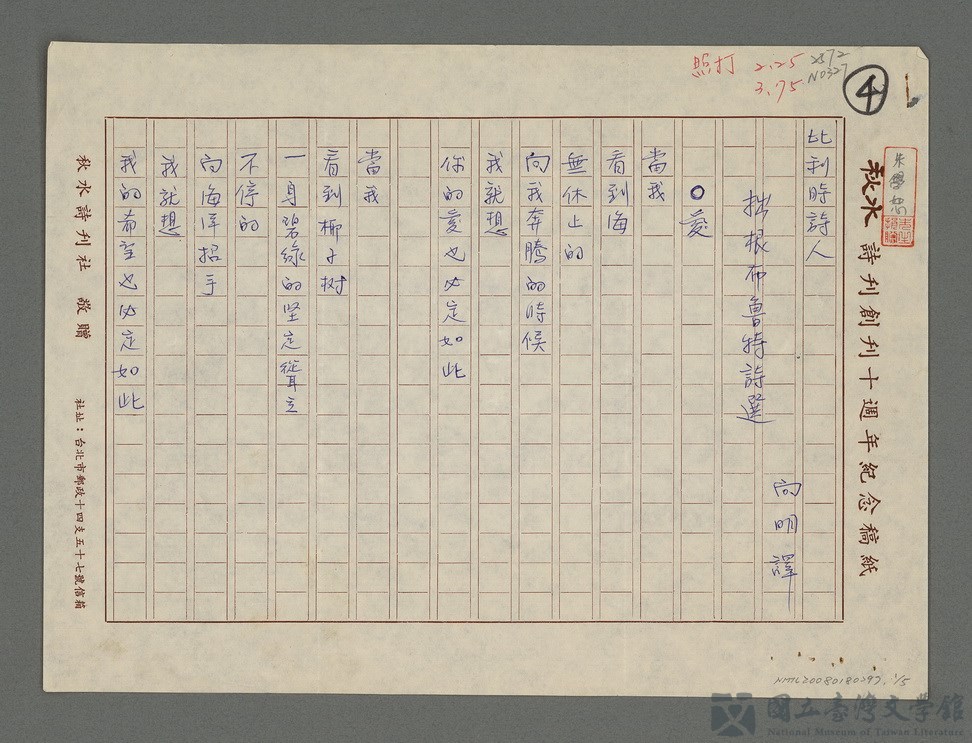 照打
2.25
3.75
2372
N0327
④
秋水詩刊創刊十週年紀念稿紙
比利時詩人
拙根布魯特詩選
向明譯
○愛
當我
看到海
無休止的
向我奔騰的時候
我就想
你的愛也必定如此
當我
看到椰子树
一身碧綠的坚定聳立
不停的
向海洋招手
我就想
我的希望也必定如此
秋水詩刊社 敬贈
社址：台北市郵政十四支五十七號信箱
NMTL20080180297. 1/5
國立臺灣文學館
National Museum of Taiwan Literature